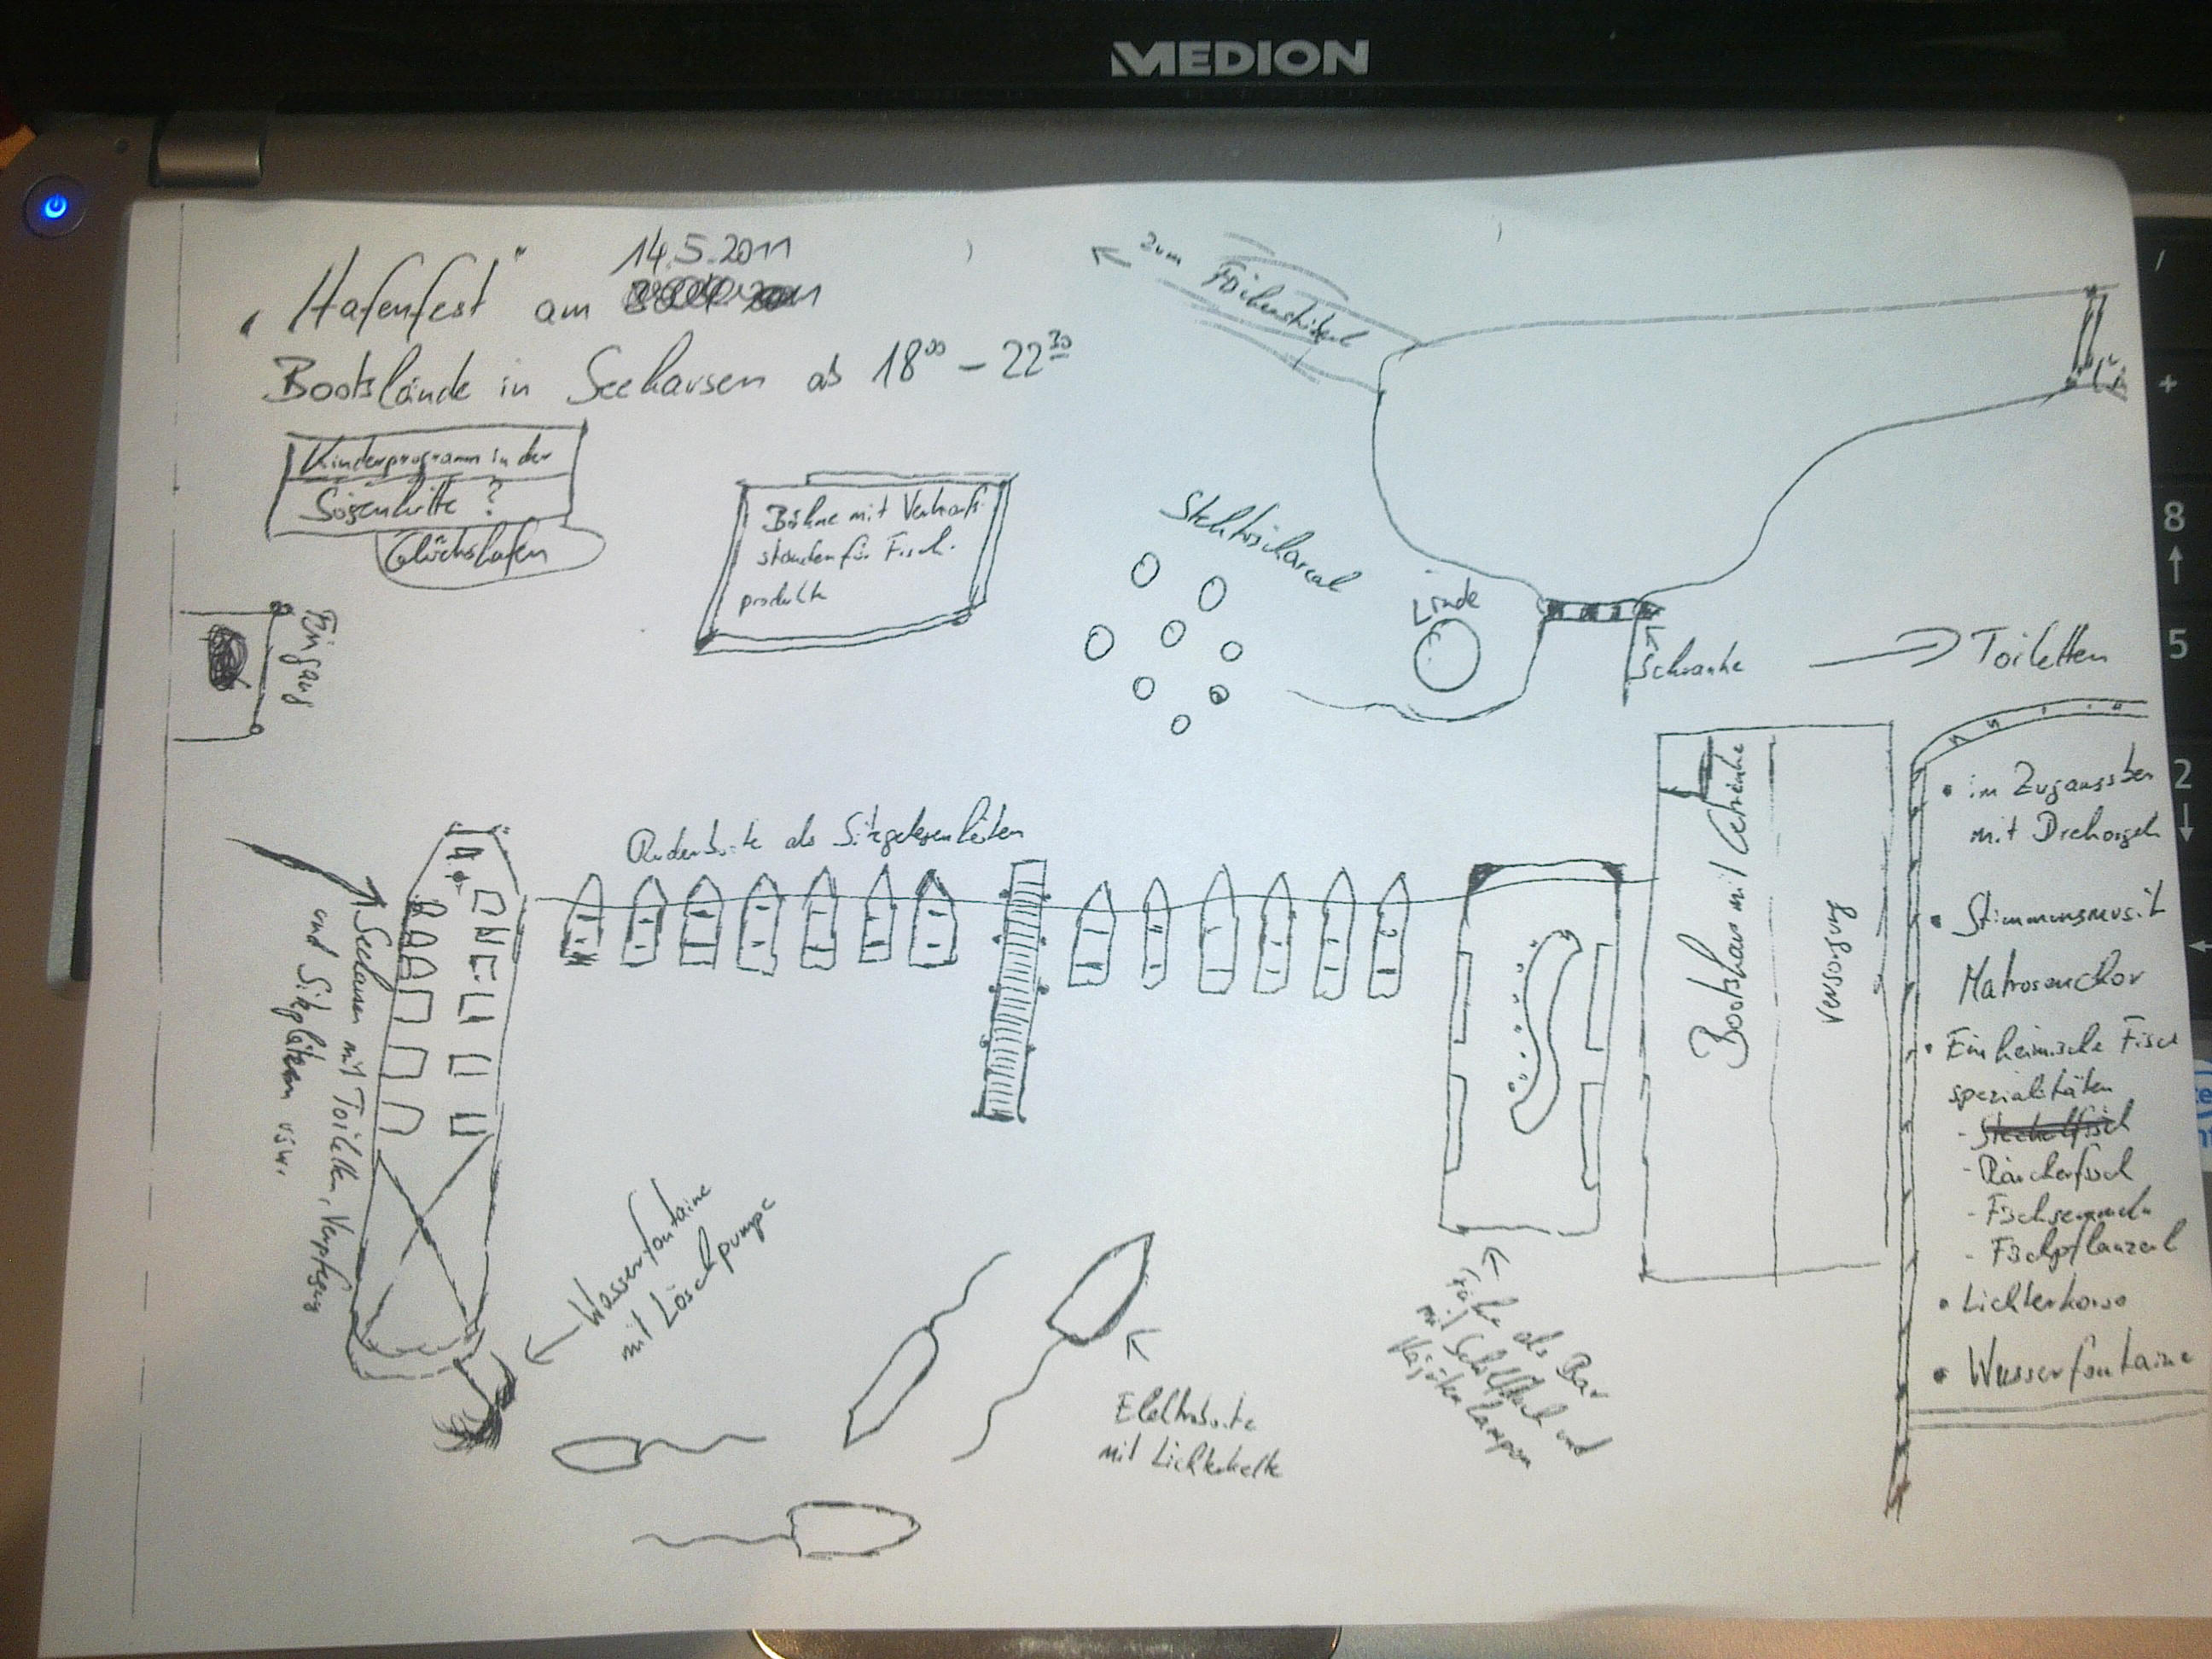 MEDION
14.5.2011
"Hafenfest" am
Bootslände in Seehausen ab 18⁰⁰ - 22³⁰
Kinderprogramm in der
Sögenhütte ?
Glückshafen
Eingang
Bühne mit Verkaufs-
standen für Fisch-
produkte
zum
Stehtischareal
Linde
Schranke
Toiletten
Ruderboote als Sitzgelegenheiten
Seehausen mit Toiletten, Verpflegung
und Sitzplätzen usw.
Wasserfontaine
mit Löschpumpe
Elektroboote
mit Lichterkette
Fähre als Bar
mit Schilfdach und
Bootshaus mit Getränke
versorgung
• im Zugangsber
mit Drehorgel
• Stimmungsmusik
Matrosenchor
• Einheimische Fisch
spezialitäten
- Steckerlfisch
- Räucherfisch
- Fischsemmeln
- Fischpflanzerl
• Lichterkorso
• Wasserfontaine
8
5
2
+
/